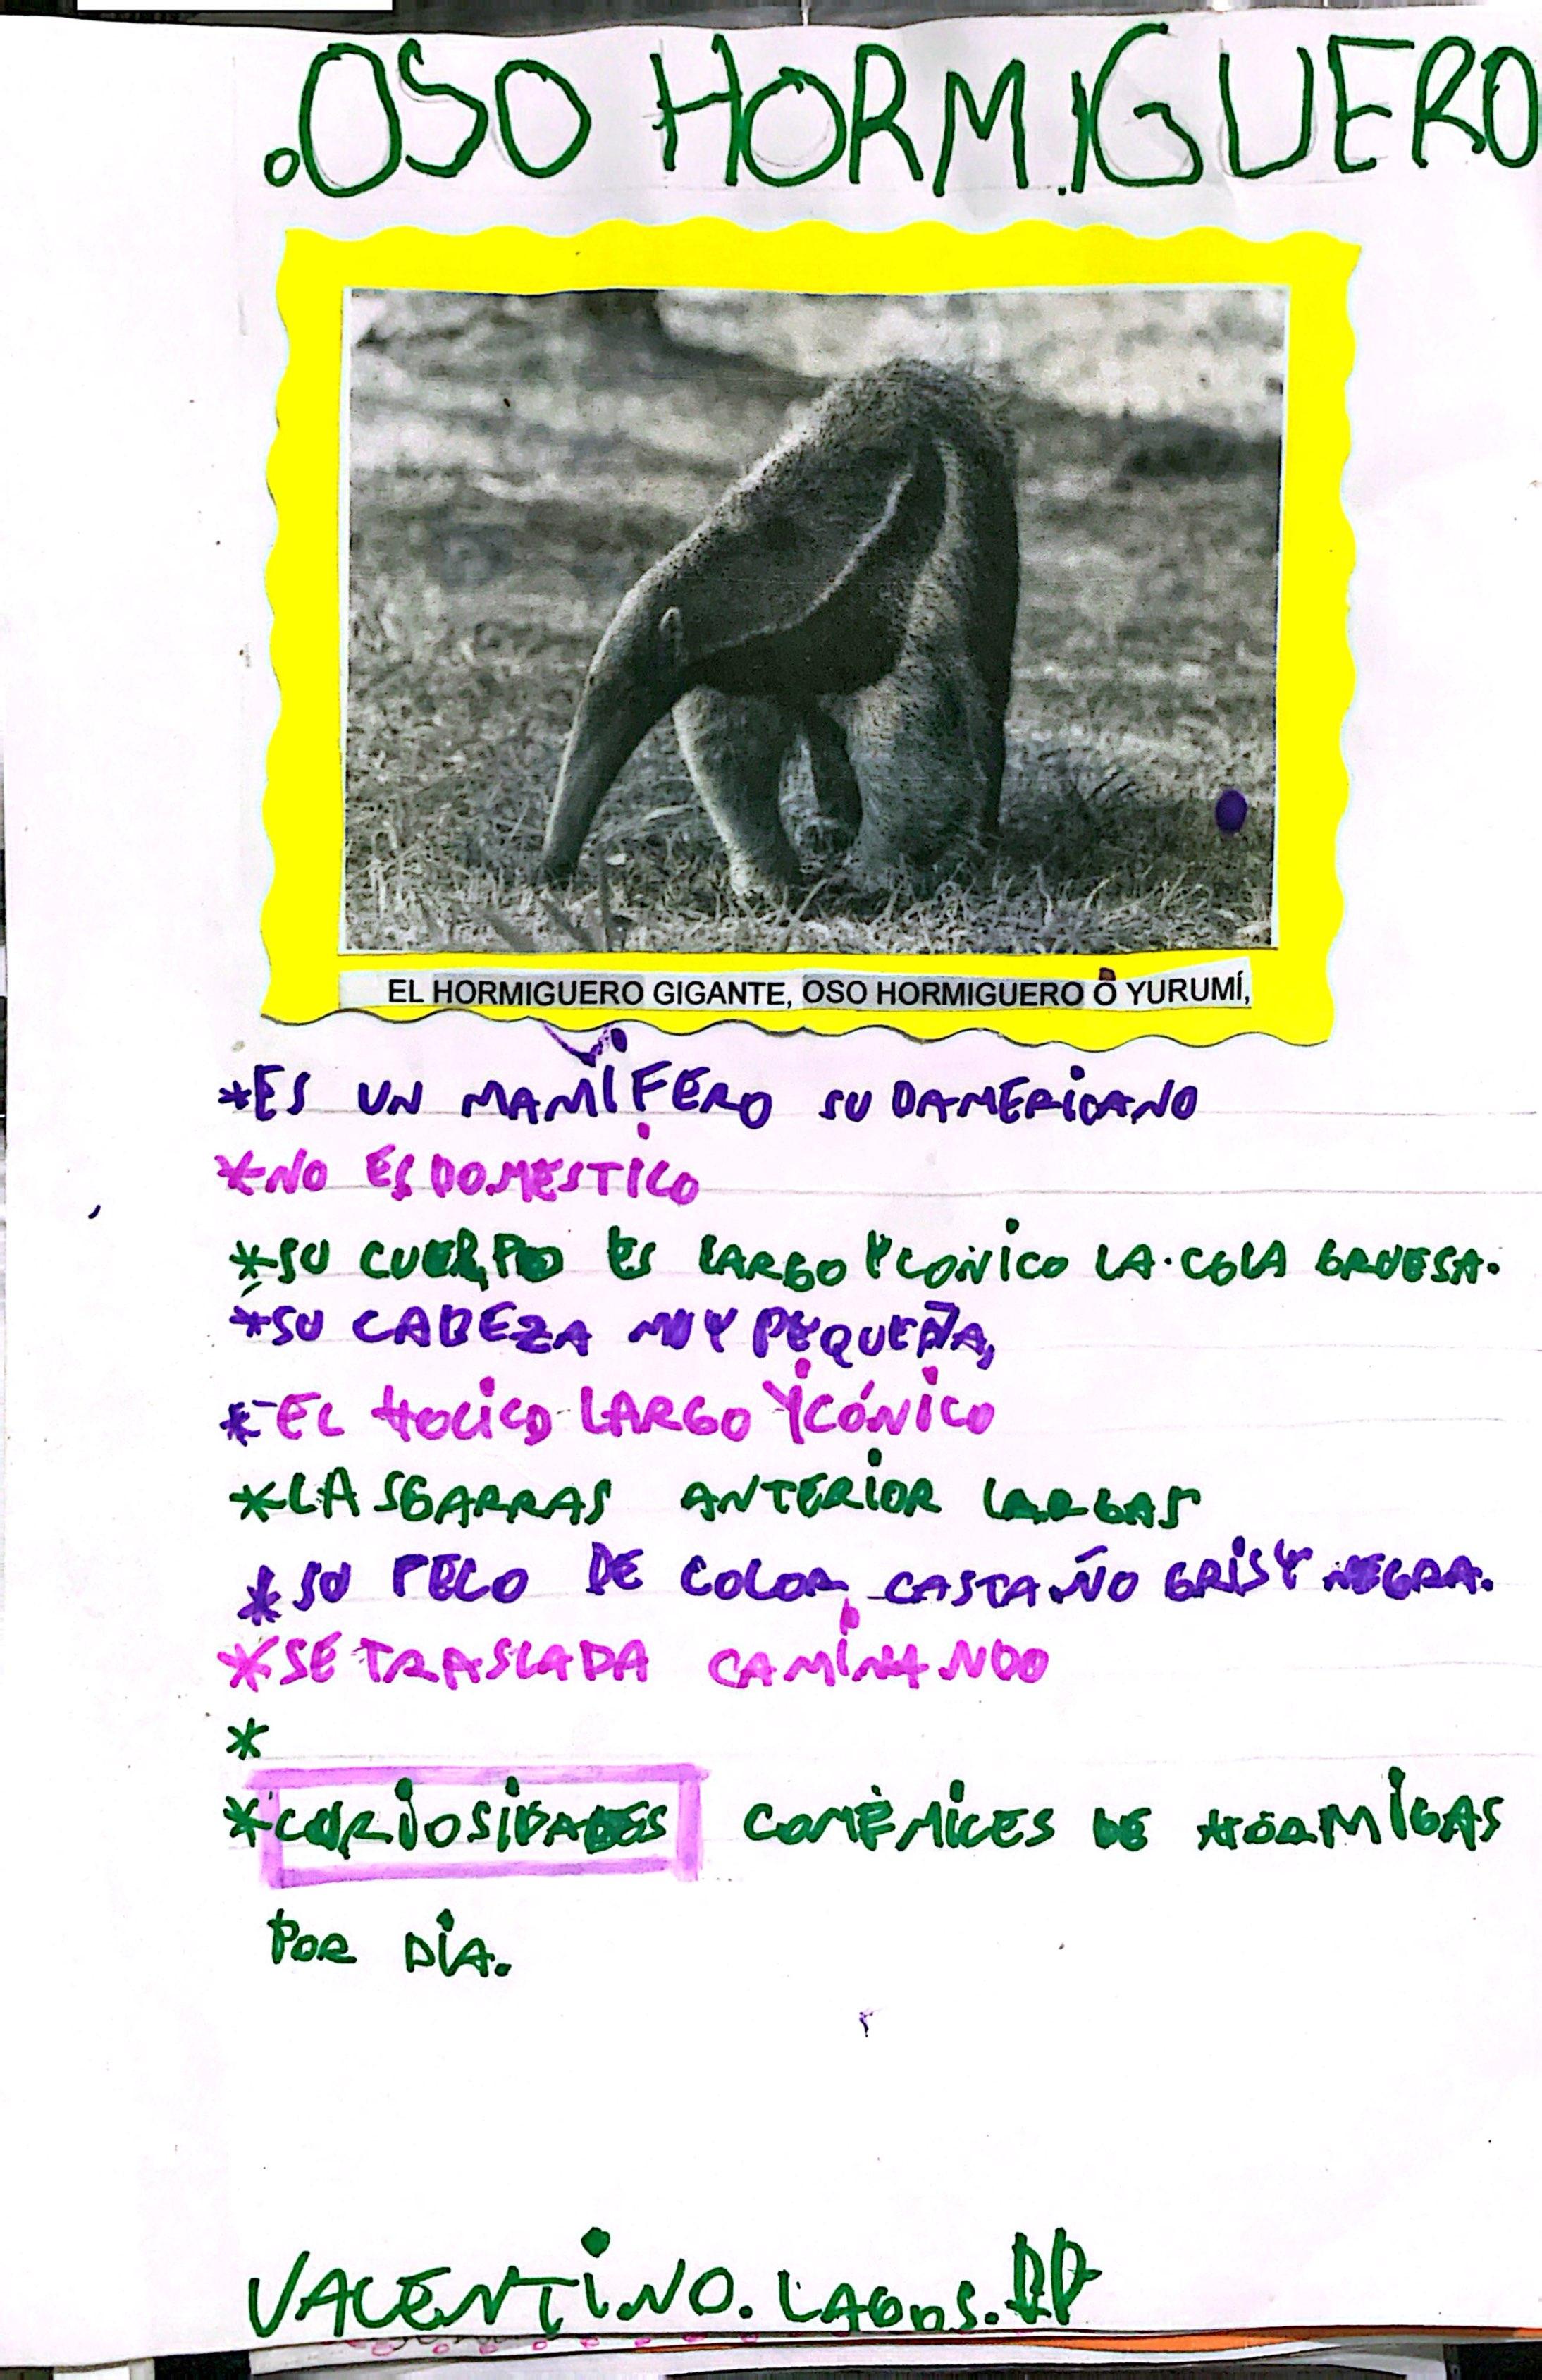 .OSO HORMIGUERO
EL HORMIGUERO GIGANTE, OSO HORMIGUERO O YURUMÍ,
*ES UN MAMIFERO SUDAMERICANO
*NO ES DOMESTICO
*SU CUERPO ES LARGO Y CONICO LA.COLA GRUESA.
*SU CABEZA MUY PEQUEÑA,
*-EL HOCICO LARGO Y CÓNICO
*LAS GARRAS ANTERIOR LARGAS
*SU PELO DE COLOR CASTAÑO GRIS Y NEGRA.
*SE TRASLADA CAMINANDO
*
*CURIOSIDADES COME MICES DE HORMIGAS
POR DIA.
VALENTINO. LAGOS.